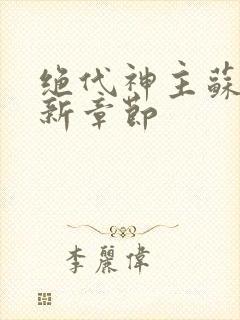 绝代神主蘇
新章節
李麗偉